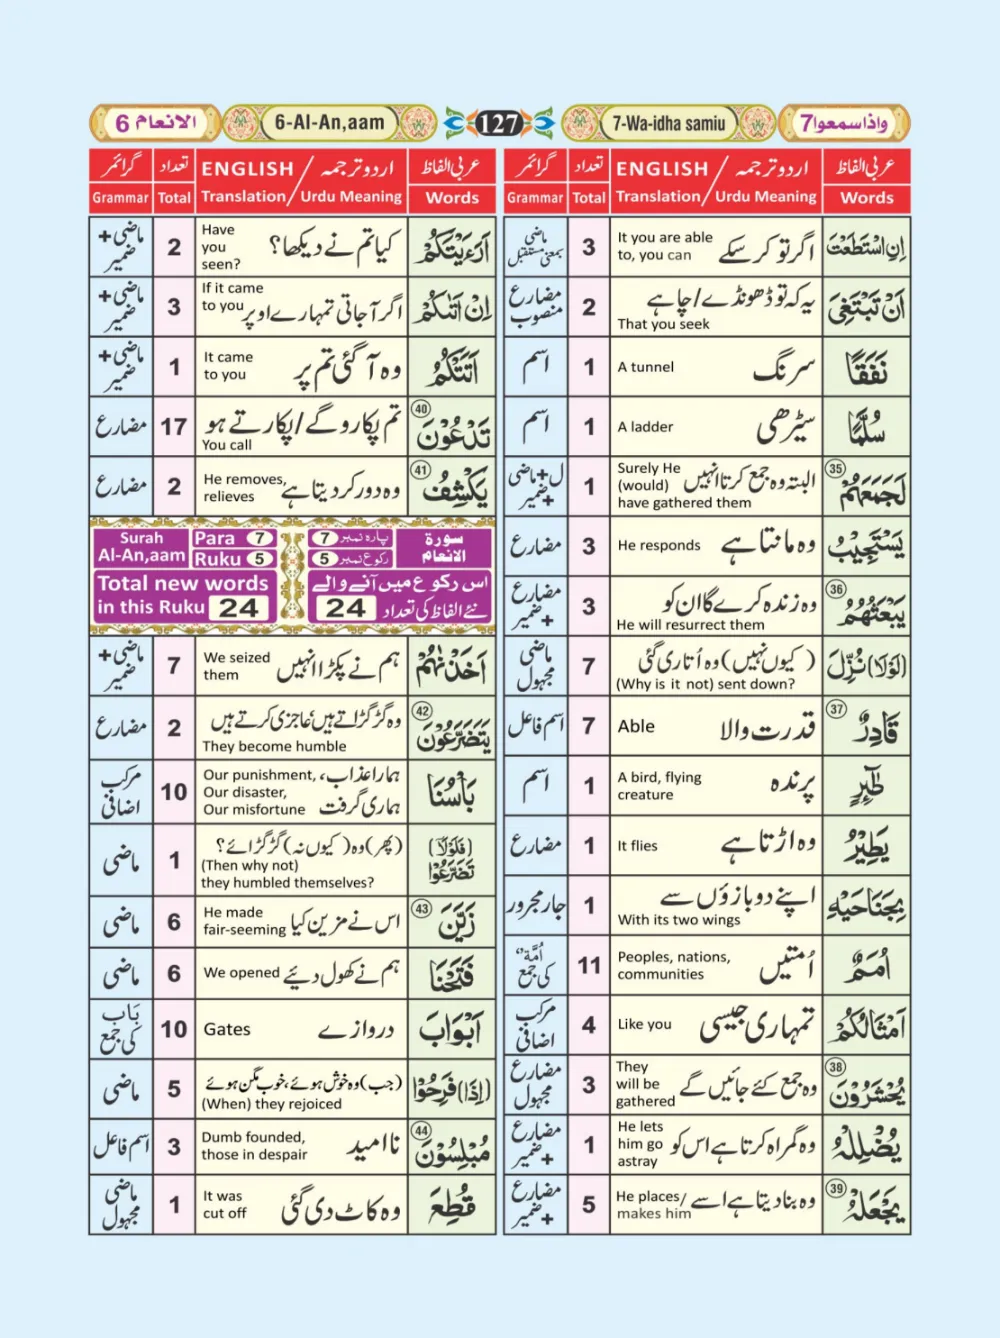 الانعام 6
6-Al-An,aam
127
7-Wa-idha samiu
واذاسمعوا 7
عربی الفاظ اردو ترجمہ / ENGLISH تعداد گرائمر
Words Urdu Meaning / Translation Total Grammar
اِنِ اسْتَطَعْتَ اگر تو کر سکے It you are able to, you can 3 ماضی بمعنی مستقبل
اَنْ تَبْتَغِیَ یہ کہ تو ڈھونڈے/چاہے That you seek 2 مضارع منصوب
نَفَقًا سرنگ A tunnel 1 اسم
سُلَّمًا سیڑھی A ladder 1 اسم
لَجَمَعَهُمْ ㉟ البتہ وہ جمع کرتا انہیں Surely He (would) have gathered them 1 ل+ماضی +ضمیر
یَسْتَجِیْبُ وہ مانتا ہے He responds 3 مضارع
یَبْعَثُهُمُ ㊱ وہ زندہ کرے گا ان کو He will resurrect them 3 مضارع +ضمیر
(لَوْلَا) نُزِّلَ (کیوں نہیں) وہ اُتاری گئی (Why is it not) sent down? 7 ماضی مجہول
قَادِرٌ ㊲ قدرت والا Able 7 اسم فاعل
طٰٓئِرٍ پرندہ A bird, flying creature 1 اسم
یَطِیْرُ وہ اڑتا ہے It flies 1 مضارع
بِجَنَاحَیْهِ اپنے دو بازوؤں سے With its two wings 1 جار مجرور
اُمَمٌ اُمتیں Peoples, nations, communities 11 اُمَّةٌ کی جمع
اَمْثَالُكُمْ تمہاری جیسی Like you 4 مرکب اضافی
یُحْشَرُوْنَ ㊳ وہ جمع کئے جائیں گے They will be gathered 3 مضارع مجہول
یُضْلِلْهُ وہ گمراہ کرتا ہے اس کو He lets him go astray 1 مضارع +ضمیر
یَجْعَلْهُ ㊴ وہ بنا دیتا ہے اسے He places/ makes him 5 مضارع +ضمیر
عربی الفاظ اردو ترجمہ / ENGLISH تعداد گرائمر
Words Urdu Meaning / Translation Total Grammar
اَرَءَیْتَكُمْ کیا تم نے دیکھا؟ Have you seen? 2 ماضی+ ضمیر
اِنْ اَتٰىكُمْ اگر آجاتی تمہارے اوپر If it came to you 3 ماضی+ ضمیر
اَتَتْكُمُ وہ آ گئی تم پر It came to you 1 ماضی+ ضمیر
تَدْعُوْنَ ㊵ تم پکارو گے/پکارتے ہو You call 17 مضارع
یَكْشِفُ ㊶ وہ دور کر دیتا ہے He removes, relieves 2 مضارع
Surah Al-An,aam Para 7 Ruku 5
سورۃ الانعام پارہ نمبر 7 رکوع نمبر 5
Total new words in this Ruku 24
اس رکوع میں آنے والے نئے الفاظ کی تعداد 24
اَخَذْنٰهُمْ ہم نے پکڑا انہیں We seized them 7 ماضی+ ضمیر
یَتَضَرَّعُوْنَ ㊷ وہ گڑگڑاتے ہیں، عاجزی کرتے ہیں They become humble 2 مضارع
بَاْسُنَا ہمارا عذاب، ہماری گرفت Our punishment, Our disaster, Our misfortune 10 مرکب اضافی
(فَلَوْلَا) تَضَرَّعُوْا (پھر) وہ (کیوں نہ) گڑگڑائے؟ (Then why not) they humbled themselves? 1 ماضی
زَیَّنَ ㊸ اس نے مزین کیا He made fair-seeming 6 ماضی
فَتَحْنَا ہم نے کھول دیئے We opened 6 ماضی
اَبْوَابَ دروازے Gates 10 بَاب کی جمع
(اِذَا) فَرِحُوْا (جب) وہ خوش ہوئے، خوب مگن ہوئے (When) they rejoiced 5 ماضی
مُبْلِسُوْنَ ㊹ نا امید Dumb founded, those in despair 3 اسم فاعل
قُطِعَ وہ کاٹ دی گئی It was cut off 1 ماضی مجہول